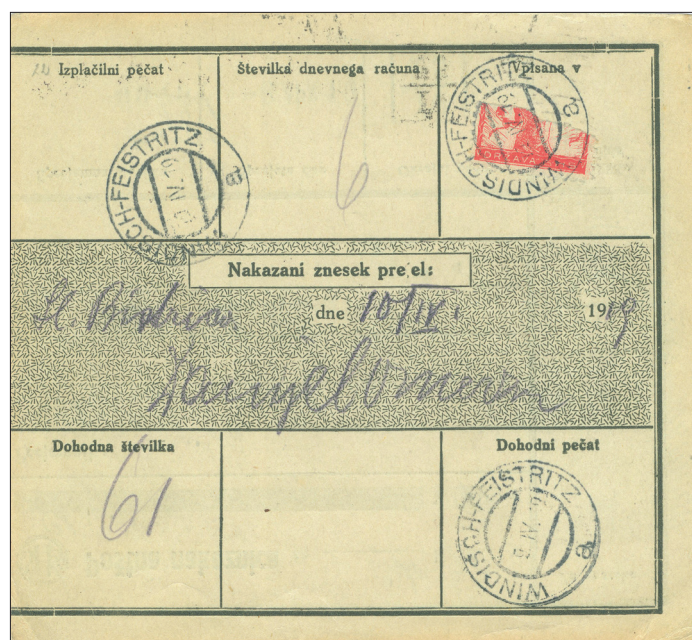 Izplačilni pečat
Številka dnevnega računa
Vpisana v
WINDISCH-FEISTRITZ a
9. IV. 19
6
WINDISCH-FEISTRITZ a
DRŽAVA
Nakazani znesek prejel:
dne 10/IV. 1919
Dohodna številka
61
Dohodni pečat
WINDISCH-FEISTRITZ a
9. IV. 19